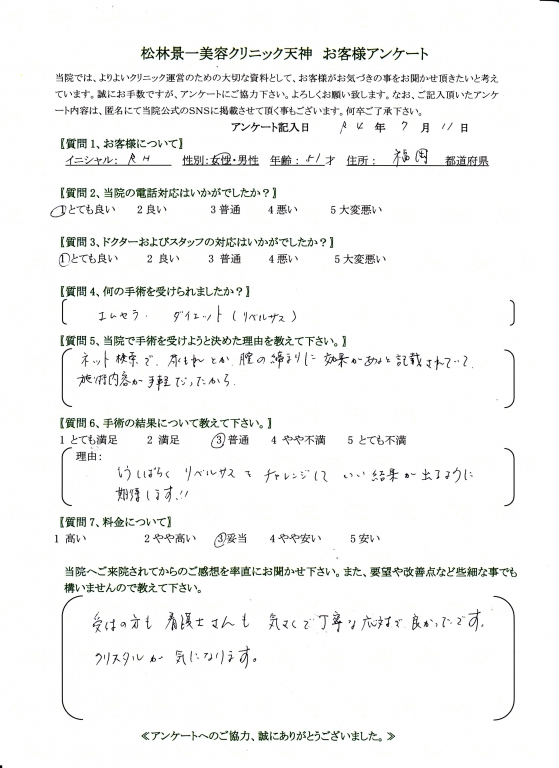 松林景一美容クリニック天神　お客様アンケート
当院では、よりよいクリニック運営のための大切な資料として、お客様がお気づきの事をお聞かせ頂きたいと考え
ています。誠にお手数ですが、アンケートにご協力下さい。よろしくお願い致します。なお、ご記入頂いたアンケ
ート内容は、匿名にて当院公式のSNSに掲載させて頂く事もございます。何卒ご了承下さい。
アンケート記入日　R4 年 7 月 11 日
【質問 1、お客様について】
イニシャル： R H　性別：女性・男性　年齢：51 才　住所：福岡　都道府県
【質問 2、当院の電話対応はいかがでしたか？】
1 とても良い　2 良い　3 普通　4 悪い　5 大変悪い
【質問 3、ドクターおよびスタッフの対応はいかがでしたか？】
1 とても良い　2 良い　3 普通　4 悪い　5 大変悪い
【質問 4、何の手術を受けられましたか？】
エムセラ．ダイエット（リベルサス）
【質問 5、当院で手術を受けようと決めた理由を教えて下さい。】
ネット検索で、尿もれとか、膣の締まりに効果があると記載されていて、
施術内容が手軽だったから．
【質問 6、手術の結果について教えて下さい。】
1 とても満足　2 満足　3 普通　4 やや不満　5 とても不満
理由：
もうしばらく リベルサスを チャレンジして いい結果が出るように
期待します!!
【質問 7、料金について】
1 高い　2 やや高い　3 妥当　4 やや安い　5 安い
当院へご来院されてからのご感想を率直にお聞かせ下さい。また、要望や改善点など些細な事でも
構いませんので教えて下さい。
受付の方も 看護士さんも 気さくで丁寧な応対で良かったです。
クリスタルが 気になります。
≪アンケートへのご協力、誠にありがとうございました。≫